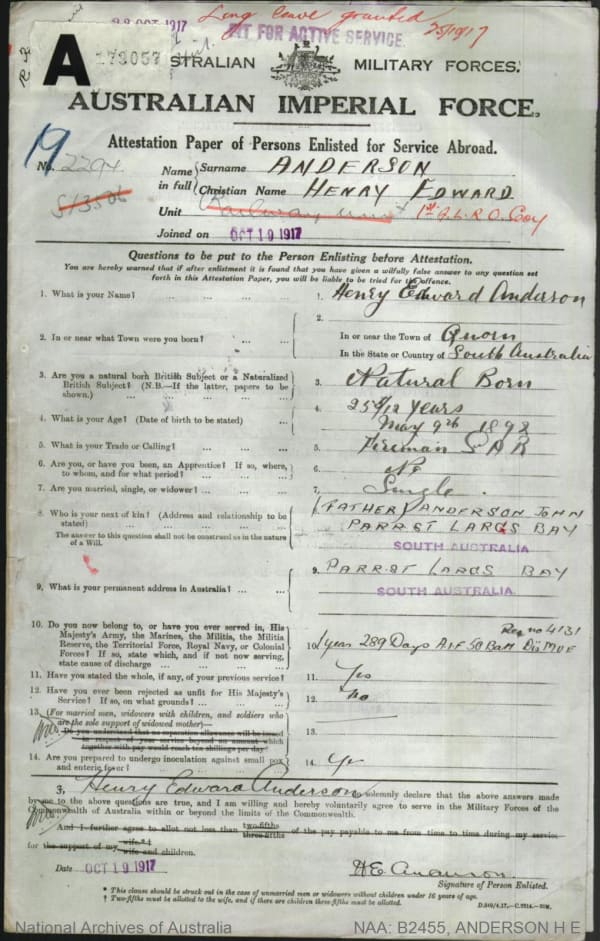 Long leave granted
25/10/17
OCT 1917
FIT FOR ACTIVE SERVICE.
A
173057
AUSTRALIAN MILITARY FORCES.
AUSTRALIAN IMPERIAL FORCE.
Attestation Paper of Persons Enlisted for Service Abroad.
19
No. 2294
Name in full { Surname ANDERSON
Christian Name HENRY EDWARD
51350b
Unit Railway Unit 1st A.L.R.O. Coy
Joined on OCT 19 1917
Questions to be put to the Person Enlisting before Attestation.
You are hereby warned that if after enlistment it is found that you have given a wilfully false answer to any question set
forth in this Attestation Paper, you will be liable to be tried for the offence.
1. What is your Name? ... 1. Henry Edward Anderson
2. In or near what Town were you born? ... 2. In or near the Town of Quorn
In the State or Country of South Australia
3. Are you a natural born British Subject or a Naturalized
British Subject? (N.B.—If the latter, papers to be
shown.) ... 3. Natural Born
4. What is your Age? (Date of birth to be stated) ... 4. 25 5/12 years
May 9th 1892
5. What is your Trade or Calling? ... 5. Fireman SAR
6. Are you, or have you been, an Apprentice? If so, where,
to whom, and for what period? ... 6. No
7. Are you married, single, or widower? ... 7. Single
8. Who is your next of kin? (Address and relationship to be
stated) ... 8. (FATHER) ANDERSON JOHN
PARROT LARGS BAY
SOUTH AUSTRALIA
The answer to this question shall not be construed as in the nature
of a Will.
9. What is your permanent address in Australia? ... 9. PARROT LARGS BAY
SOUTH AUSTRALIA
10. Do you now belong to, or have you ever served in, His
Majesty's Army, the Marines, the Militia, the Militia
Reserve, the Territorial Force, Royal Navy, or Colonial
Forces? If so, state which, and if not now serving,
state cause of discharge ... 10. Reg no 4131
1 year 289 Days A.I.F 50 Batt Dis M U F
11. Have you stated the whole, if any, of your previous service? 11. Yes
12. Have you ever been rejected as unfit for His Majesty's
Service? If so, on what grounds? ... 12. No
13. (For married men, widowers with children, and soldiers who
are the sole support of widowed mother)—
Do you understand that no separation allowance will be issued
in respect of your service beyond an amount which
together with pay would reach ten shillings per day?
14. Are you prepared to undergo inoculation against small pox
and enteric fever? 14. Yes
I, Henry Edward Anderson, solemnly declare that the above answers made
by me to the above questions are true, and I am willing and hereby voluntarily agree to serve in the Military Forces of the
Commonwealth of Australia within or beyond the limits of the Commonwealth.
And I further agree to allot not less than two-fifths three-fifths of the pay payable to me from time to time during my service
for the support of my wife* † wife and children.
Date OCT 19 1917
H E Anderson
Signature of Person Enlisted.
* This clause should be struck out in the case of unmarried men or widowers without children under 16 years of age.
† Two-fifths must be allotted to the wife, and if there are children three-fifths must be allotted.
National Archives of Australia
NAA: B2455, ANDERSON H E